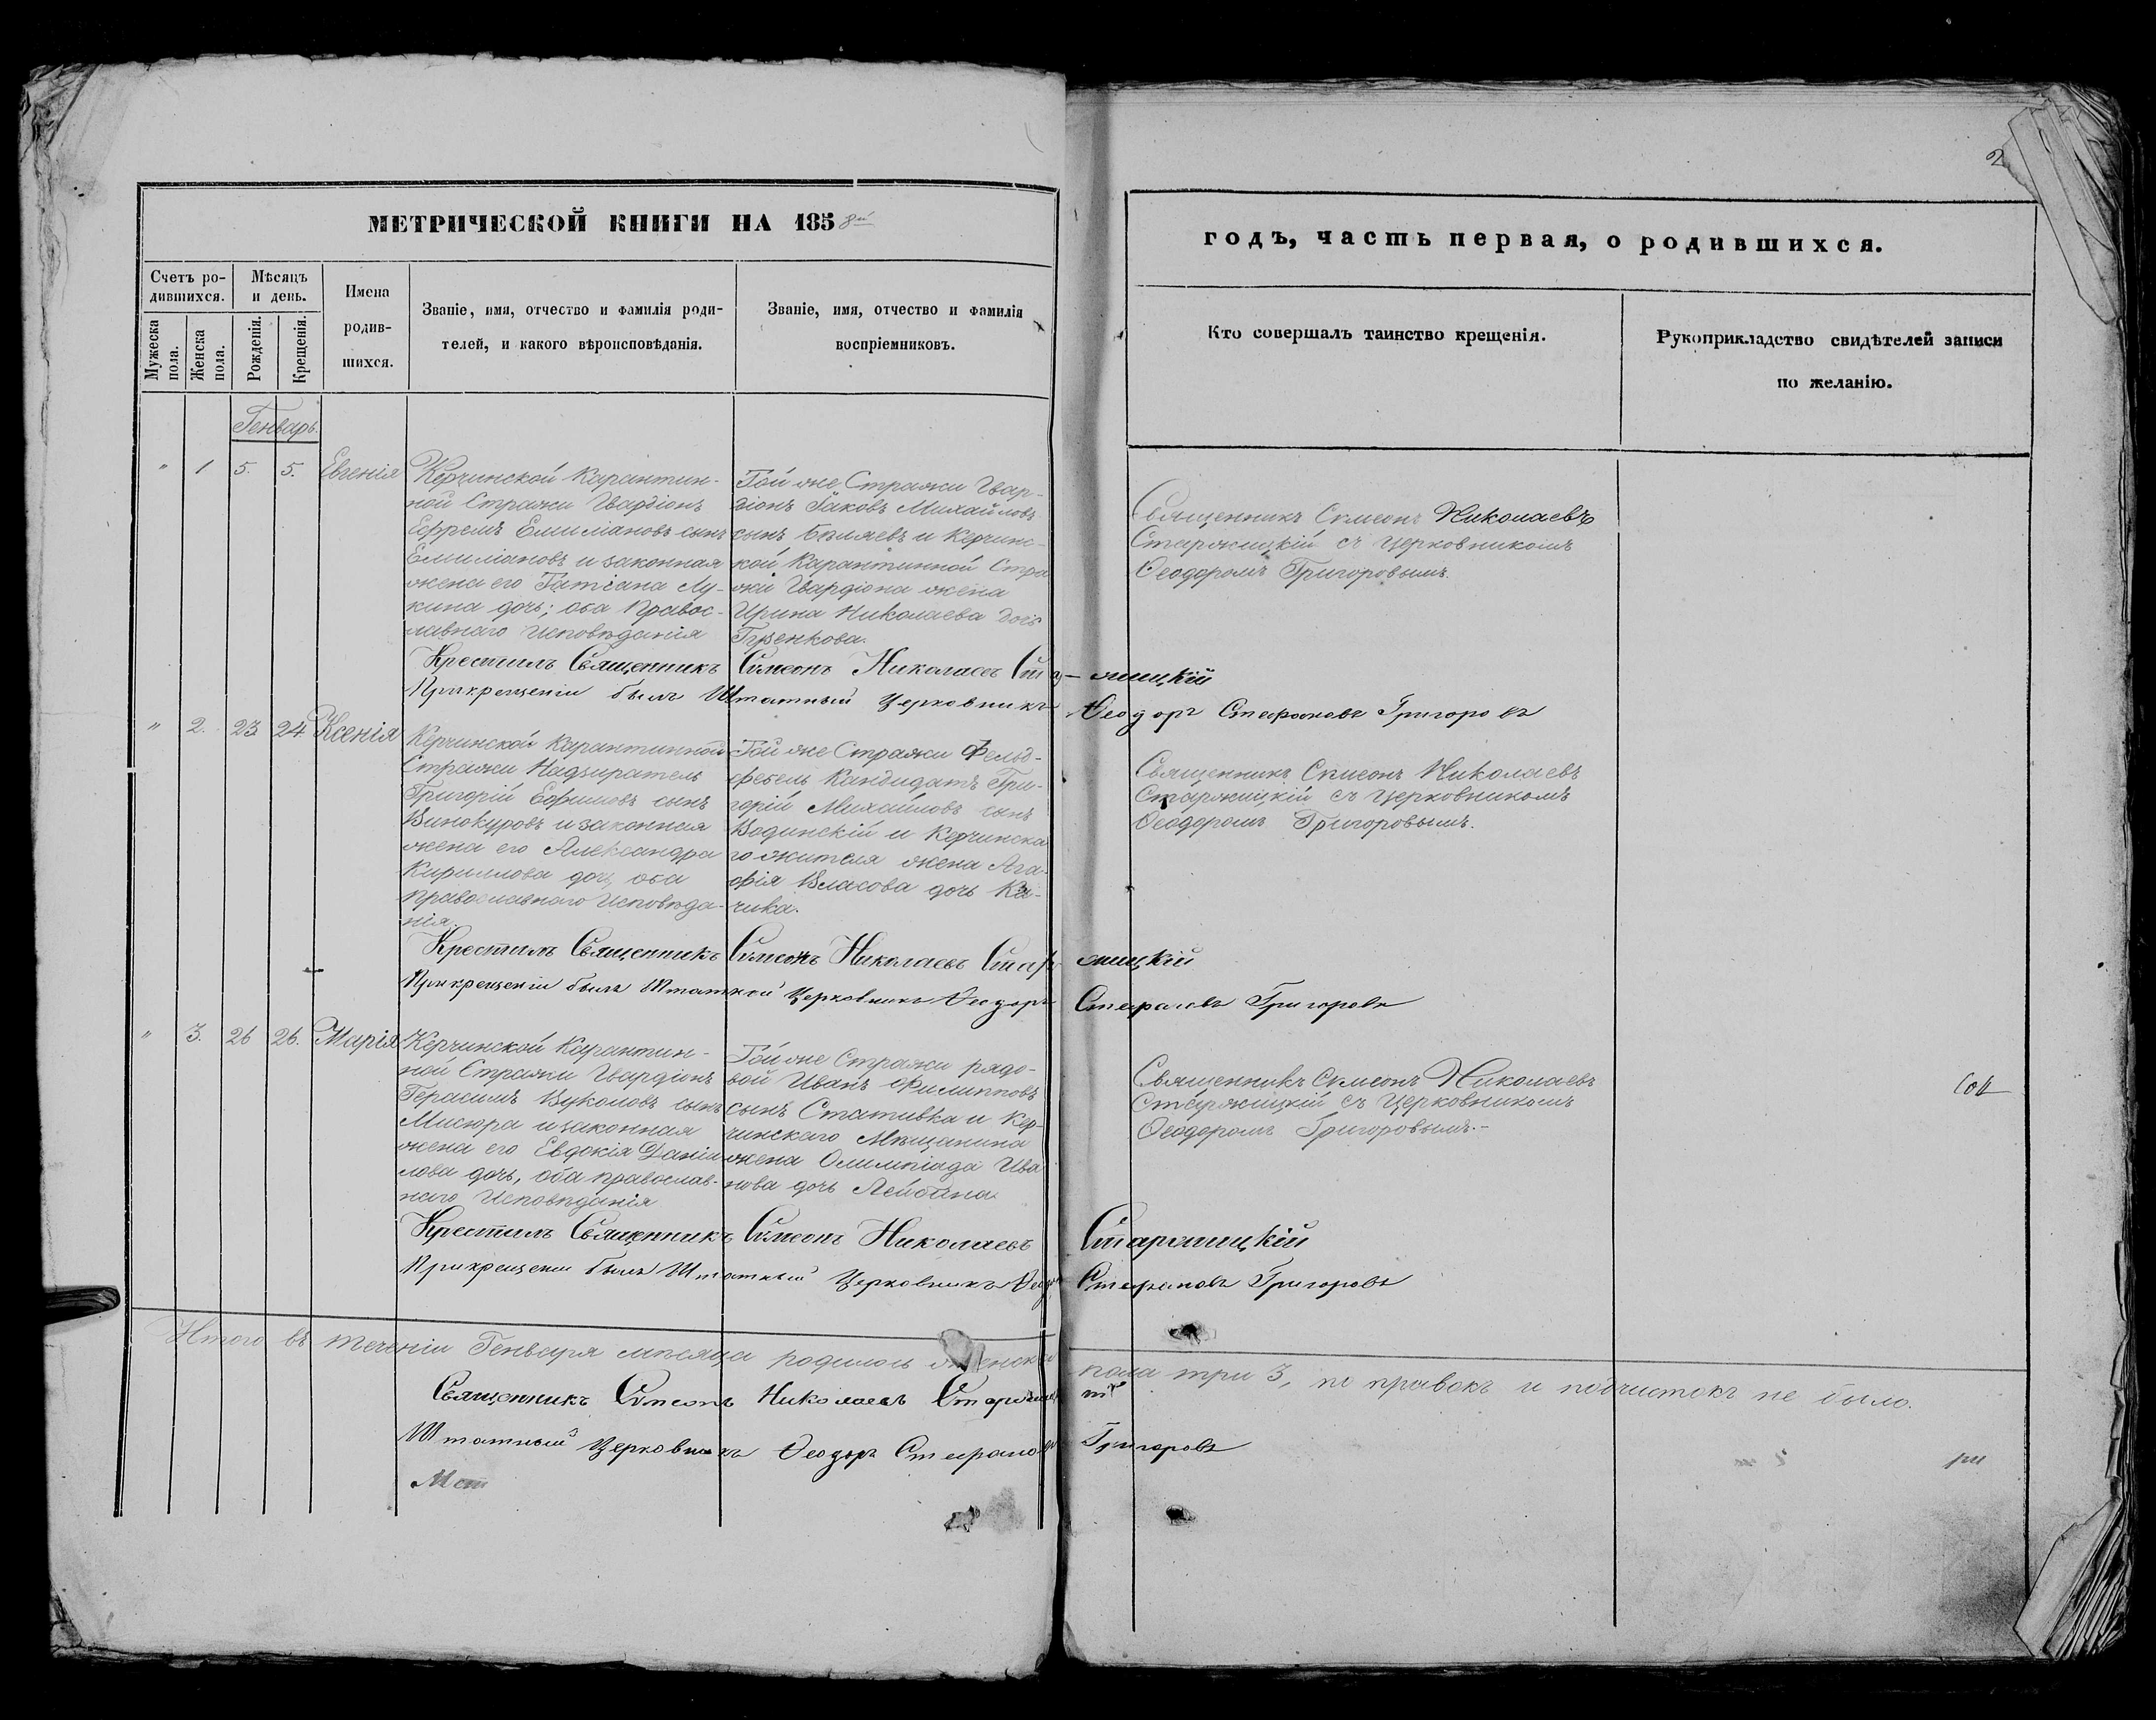 2
МЕТРИЧЕСКОЙ КНИГИ НА 1858й
годъ, часть первая, о родившихся.
Счетъ ро-
дившихся.
Мѣсяцъ
и день.
Мужеска
пола.
Женска
пола.
Рожденія.
Крещенія.
Имена
родив-
шихся.
Званіе, имя, отчество и фамилія роди-
телей, и какого вѣроисповѣданія.
Званіе, имя, отчество и фамилія
воспріемниковъ.
Кто совершалъ таинство крещенія.
Рукоприкладство свидѣтелей записи
по желанію.
Генварь.
" 1 5. 5. Евгенія
Керчинской Карантин-
ной Стражи Гвардіонъ
Ефремъ Емиліановъ сынъ
Емиліановъ и законная
жена его Татіана Лу-
кина дочь; оба Правос-
лавнаго Исповѣданія
Той же Стражи Гвар-
діонъ Іаковъ Михайловъ
сынъ Бѣляевъ и Керчинс-
кой Карантинной Стра
жи Гвардіона жена
Ирина Николаева дочь
Гузенкова.
Священникъ Сѵмеонъ Николаевъ
Старжицкій съ церковникомъ
Ѳеодоромъ Григоровымъ.
Крестилъ Священникъ Сѵмеонъ Николаевъ Стар-жицкій
Прикрещеніи былъ Штатный Церковникъ Ѳеодоръ Стефановъ Григоровъ
" 2. 23 24 Ксенія
Керчинской Карантинной
Стражи Надзиратель
Григорій Ефимовъ сынъ
Винокуровъ и законная
жена его Александра
Кириллова дочь, оба
Православнаго Исповѣда-
нія.
Той же Стражи Фельд-
фебель Кандидатъ Гри-
горій Михайловъ сынъ
Водинскій и Керчинска
го жителя жена Ага-
фія Власова дочь Ка-
чика.
Священникъ Сѵмеонъ Николаевъ
Старжицкій съ церковникомъ
Ѳеодоромъ Григоровымъ.
Крестилъ Священникъ Сѵмеонъ Николаевъ Старжицкій
Прикрещеніи былъ Штатной Церковникъ Ѳеодоръ Стефановъ Григоровъ
" 3. 26 26. Марія
Керчинской Карантин-
ной Стражи Гвардіонъ
Герасимъ Вуколовъ сынъ
Мисюра и законная
жена его Евдокія Даніи
лова дочь, оба православ-
наго Исповѣданія
Той же Стражи рядо-
вой Иванъ Филипповъ
сынъ Стативка и Кер-
чинскаго Мѣщанина
жена Олимпіада Ива
нова дочь
Священникъ Сѵмеонъ Николаевъ
Старжицкій съ Церковникомъ
Ѳеодоромъ Григоровымъ.-
Крестилъ Священникъ Сѵмеонъ Николаевъ Старжицкій
Прикрещеніи былъ Штатный Церковникъ Стефановъ Григоровъ
Итого въ теченіи Генваря мѣсяца родилось женска пола три 3, по правокъ и подчистокъ не было.
Священникъ Сѵмеонъ Николаевъ
Штатный Церковникъ Ѳеодоръ Стефановъ Григоровъ